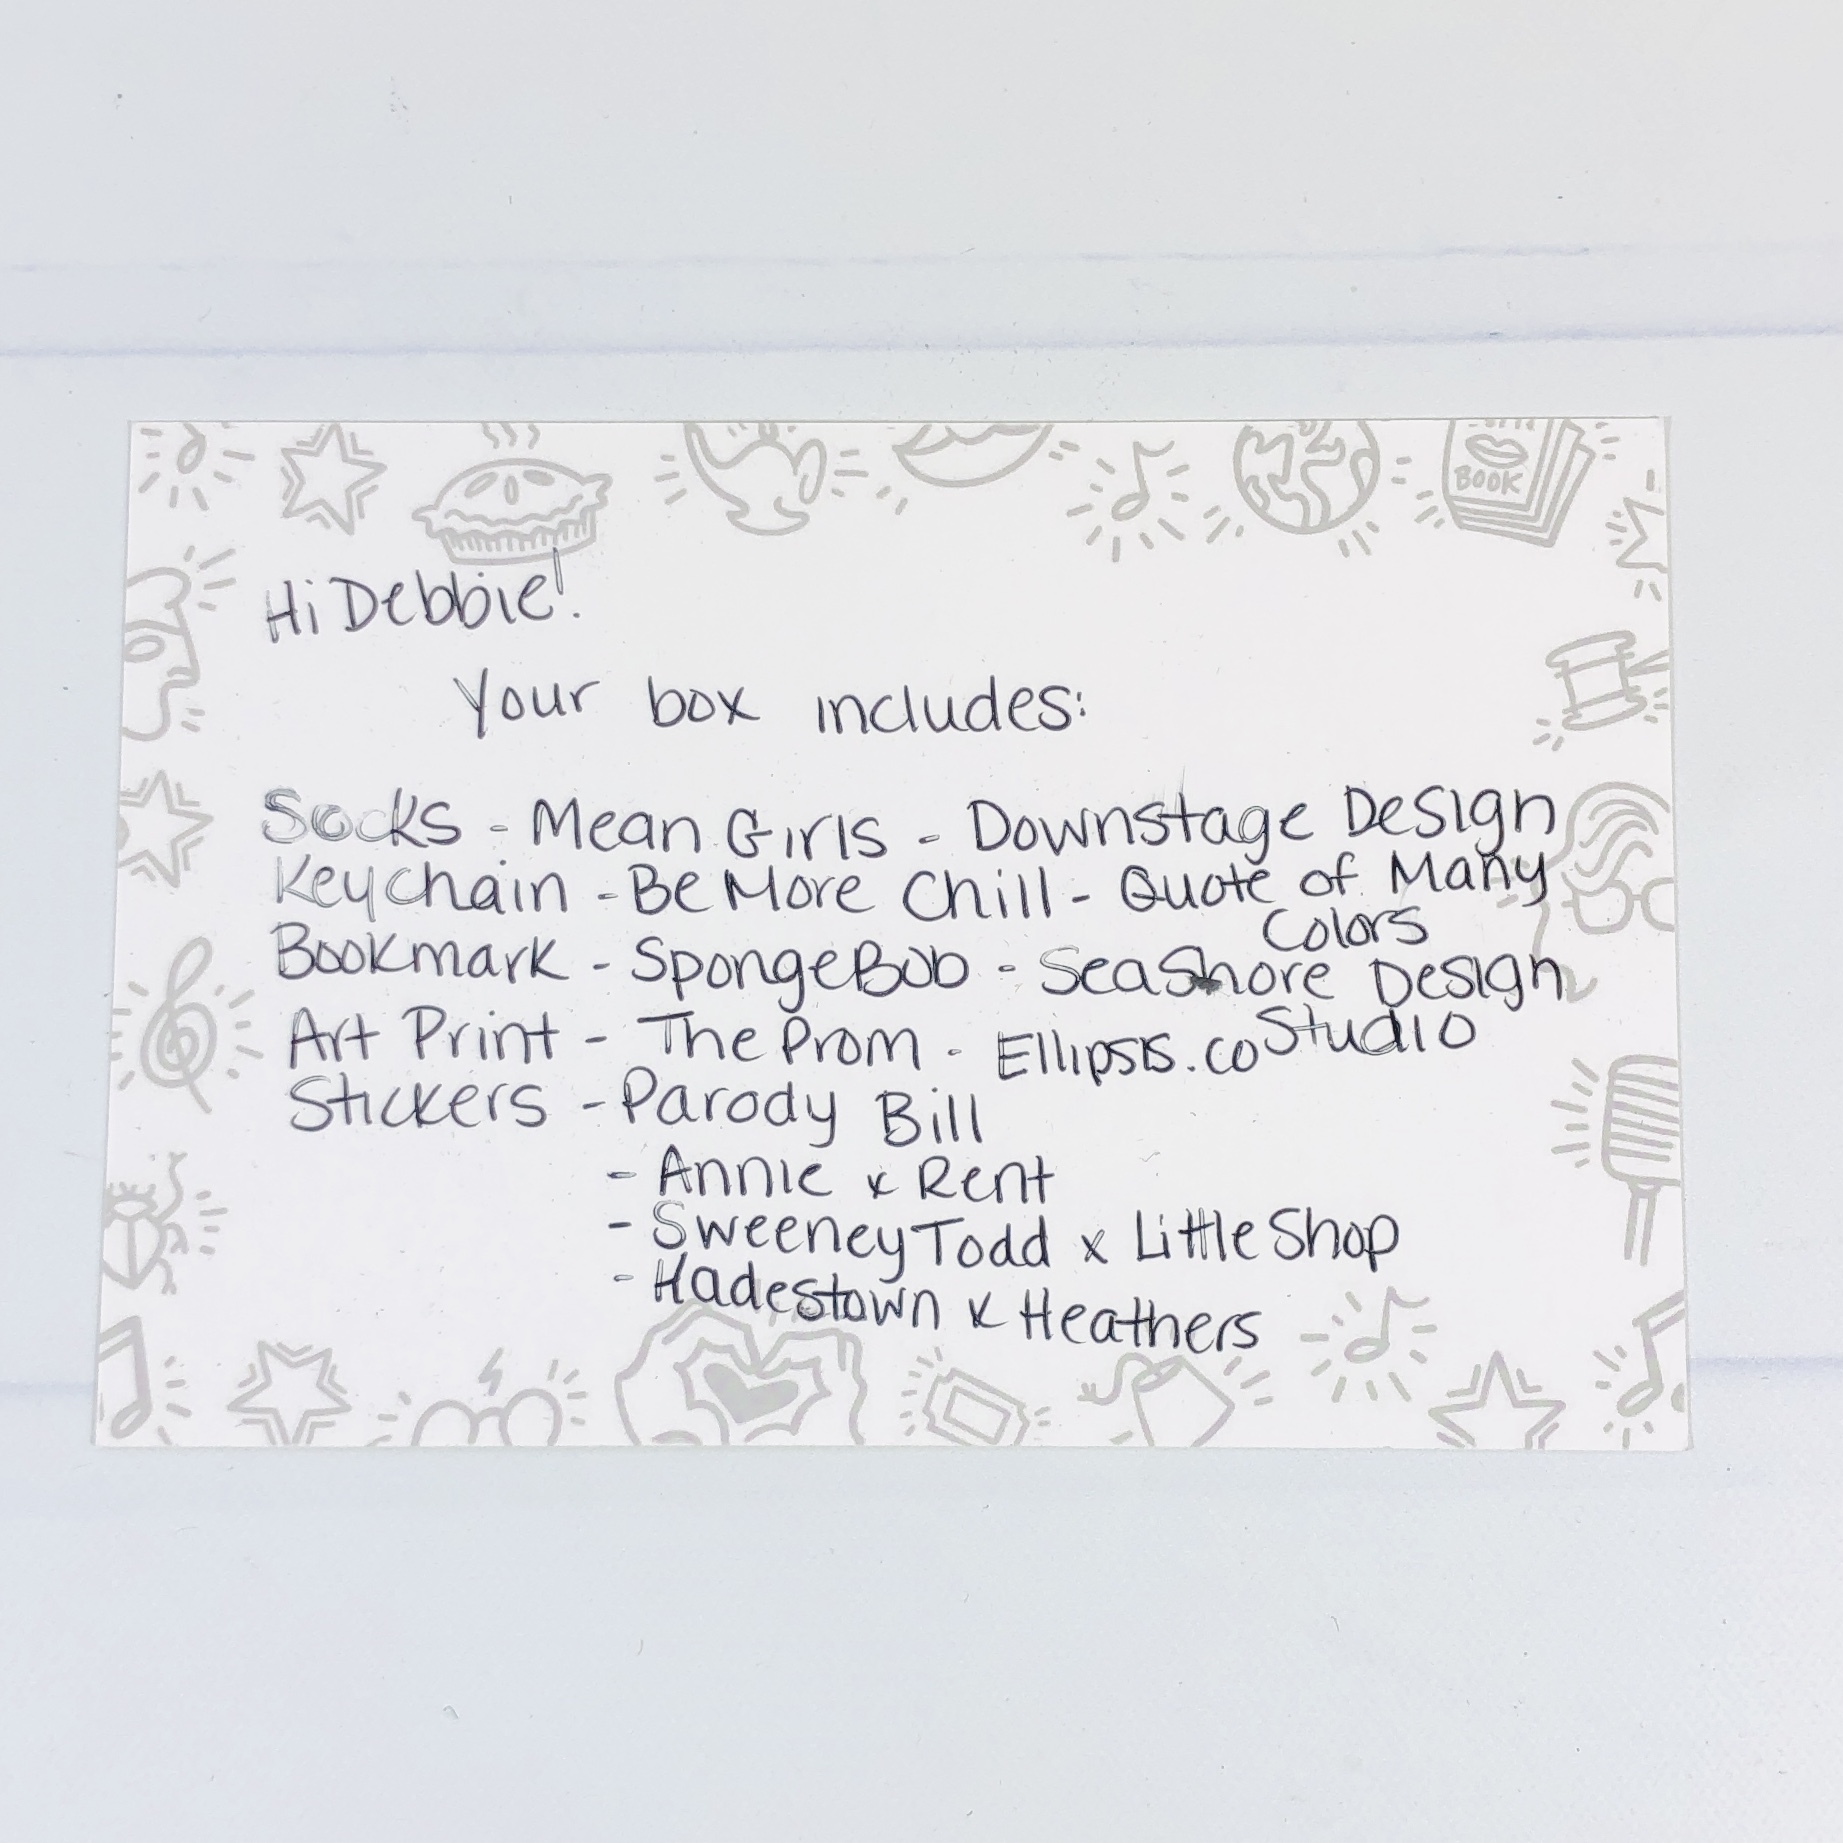 BOOK
Hi Debbie!
Your box includes:
Socks - Mean Girls - Downstage Design
Keychain - Be More Chill - Quote of Many
Colors
Bookmark - SpongeBob - SeaShore Design
Studio
Art Print - The Prom - Ellipsis.co
Stickers - Parody Bill
- Annie x Rent
- Sweeney Todd x Little Shop
- Hadestown x Heathers